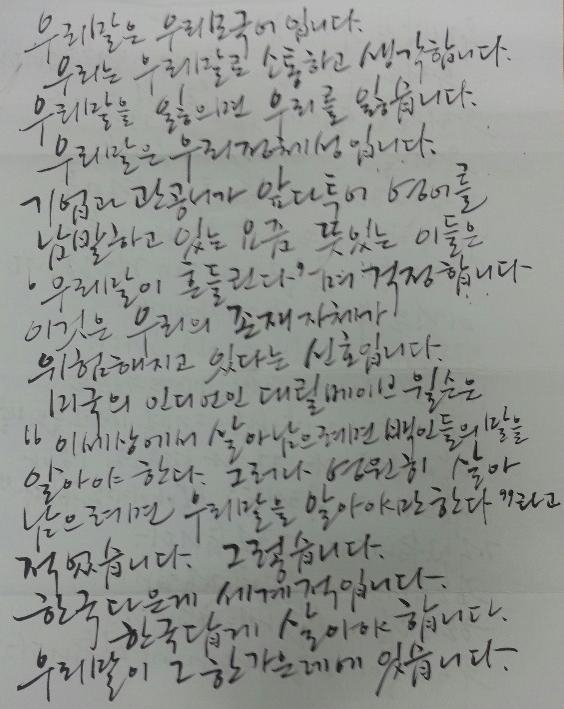 우리말은 우리모국어 입니다.
우리는 우리말로 소통하고 생각합니다.
우리말을 잃으면 우리를 잃습니다.
우리말은 우리정체성입니다.
기업과 관공서가 앞다투어 영어를
남발하고 있는 요즘 뜻있는 이들은
'우리말이 흔들린다'며 걱정합니다
이것은 우리의 존재자체가
위험해지고 있다는 신호입니다.
미국의 인디언인 대릴베이브 윌슨은
"이세상에서 살아남으려면 백인들의 말을
알아야 한다. 그러나 영원히 살아
남으려면 우리말을 알아야만한다"라고
적었습니다. 그렇습니다.
한국다운게 세계적입니다.
한국답게 살아야 합니다.
우리말이 그 한가운데에 있습니다.